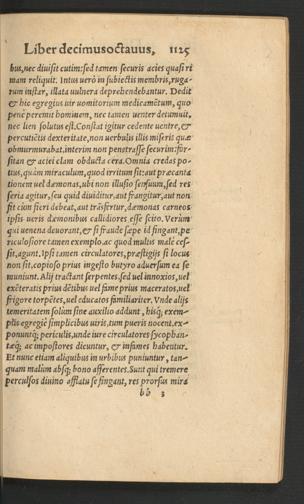 Liber decimusoctauus, 1125
bus, nec diuisit cutim: sed tamen securis acies quasi ri
mam reliquit. Intus verò in subiectis membris, ruga-
rum instar, illata vulnera deprehendebantur. Dedit
& hic egregius uir uomitorium medicamẽtum, quo
penè peremit hominem, nec tamen uenter detumuit,
nec lien solutus est. Constat igitur cedente uentre, &
percutiẽtis dexteritate, non uerbulis illis miseris quæ
obmurmurabat. interim non penetrasse securim: for-
sitan & aciei clam obducta cera. Omnia credas po-
tius, quàm miraculum, quod irritum sit: aut præcanta
tionem uel dæmonas, ubi non illusio sensuum, sed res
seria agitur, seu quid diuiditur. aut frangitur, aut non
sit cùm fieri debeat, aut trãsfertur, dæmonas carneos
ipsis ueris dæmonibus callidiores esse scito. Verùm
qui uenena deuorant, & si fraude sæpe id fingant, pe
riculosiore tamen exemplo. ac quod multis malè ces-
sit, agunt. Ipsi tamen circulatores, præstigijs si locus
non sit, copioso prius ingesto butyro aduersum ea se
muniunt. Alij tractant serpentes. sed uel innoxios, uel
exẽteratis prius dẽtibus uel fame prius maceratos, uel
frigore torpẽtes, uel educatos familiariter. Vnde alijs
temeritatem solùm sine auxilio addunt, hisq́; exem-
plis egregiè simplicibus uiris, tum pueris nocent. ex-
ponuntq́; periculis, unde iure circulatores sycophan-
tæq́; ac impostores dicuntur, & infames habentur.
Et nunc etiam aliquibus in urbibus puniuntur, tan-
quam malum absq́; bono afferentes. Sunt qui tremere
perculsos diuino afflatu se fingant, res prorsus mira
bb 3